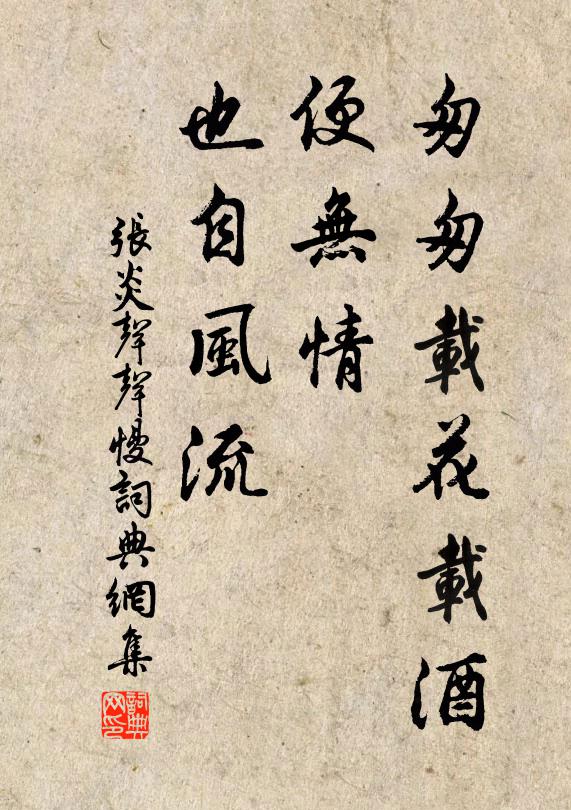 匆匆載花載酒
便無情
也自風流
張炎聲聲慢詞典網集
詞典網印